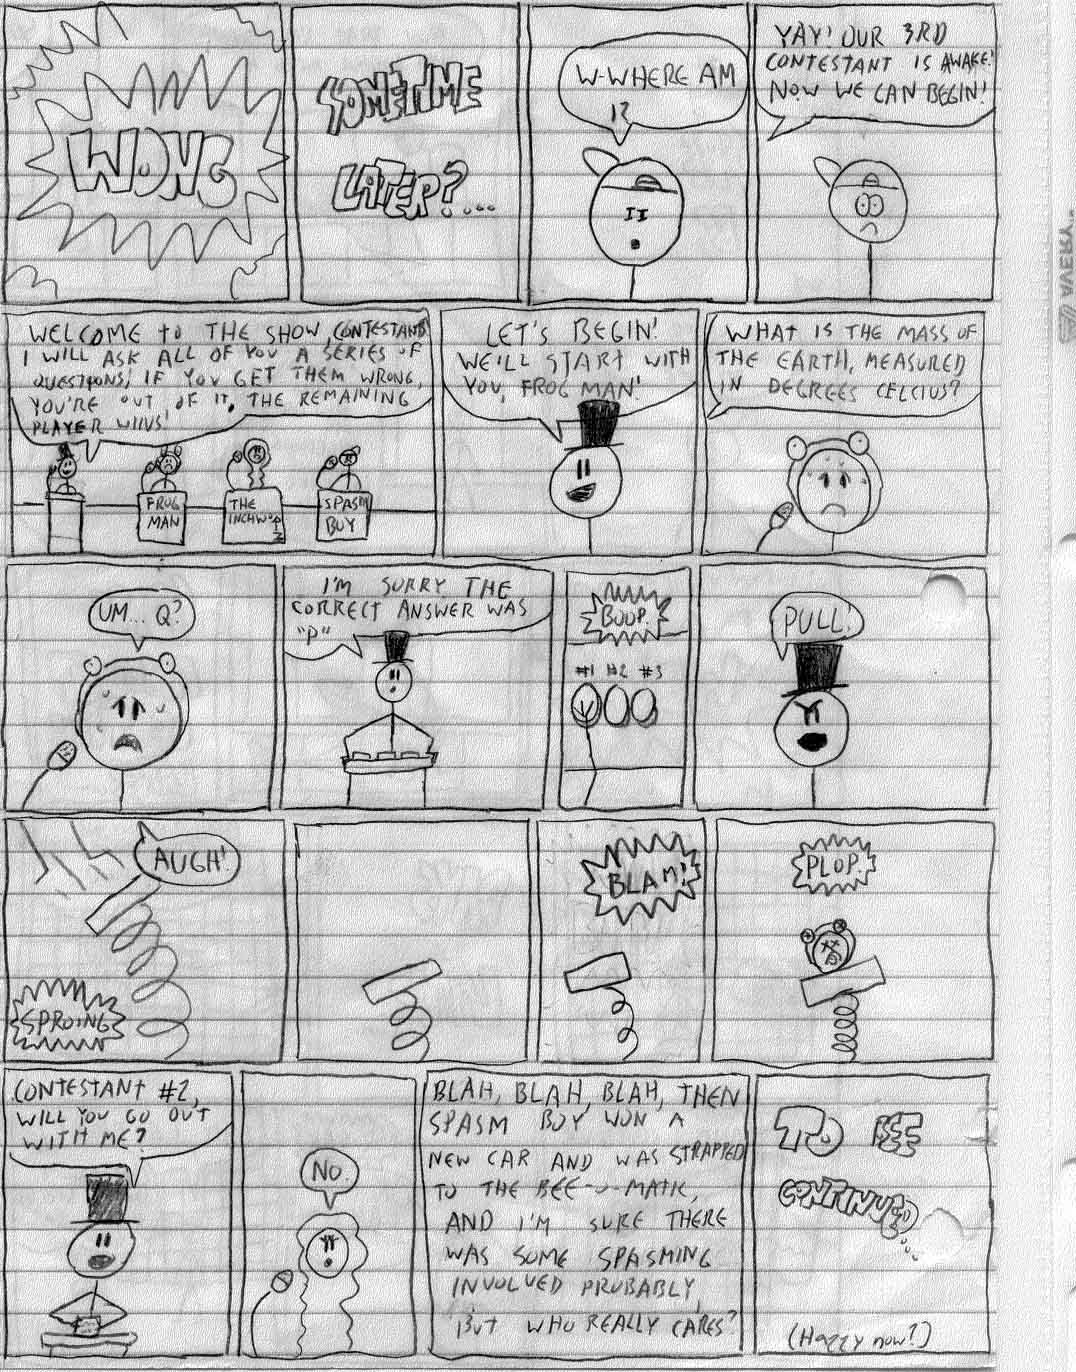 WONG
SOMETIME
LATER?...
W-WHERE AM
I?
YAY! OUR 3RD
CONTESTANT IS AWAKE!
NOW WE CAN BEGIN!
WELCOME TO THE SHOW, CONTESTANTS
I WILL ASK ALL OF YOU A SERIES OF
QUESTIONS! IF YOU GET THEM WRONG,
YOU'RE OUT OF IT. THE REMAINING
PLAYER WINS!
FROG
MAN
THE
INCHWORM
SPASM
BOY
LET'S BEGIN!
WE'LL START WITH
YOU, FROG MAN!
WHAT IS THE MASS OF
THE EARTH, MEASURED
IN DEGREES CELCIUS?
UM... Q?
I'M SORRY THE
CORRECT ANSWER WAS
"P"
BOOP.
#1 #2 #3
PULL!
AUGH!
SPROING
BLAM!
PLOP.
CONTESTANT #2,
WILL YOU GO OUT
WITH ME?
NO.
BLAH, BLAH, BLAH, THEN
SPASM BOY WON A
NEW CAR AND WAS STRAPPED
TO THE BEE-O-MATIC,
AND I'M SURE THERE
WAS SOME SPASMING
INVOLVED PROBABLY,
BUT WHO REALLY CARES?
TO BEE
CONTINUED...
(Happy now?)
AVERY